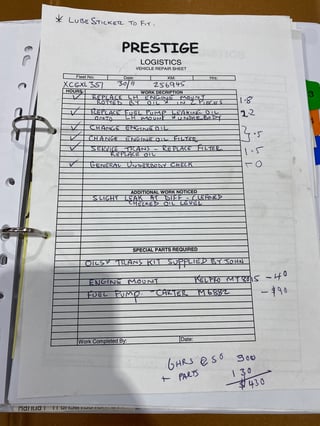 * LUBE STICKER TO FIT.
PRESTIGE
LOGISTICS
VEHICLE REPAIR SHEET
Fleet No: Date: KM: Hrs:
XCGXL307 30/9 256945
HOURS WORK DECRIPTION
✓ REPLACE LH ENGINE MOUNT 1.8
ROTTED BY OIL * IN 2 PIECES
✓ REPLACE FUEL PUMP LEAKING OIL 2.2
ONTO LH MOUNT & UNDERBODY
✓ CHANGE ENGINE OIL
✓ CHANGE ENGINE OIL FILTER } .5
✓ SERVICE TRANS - REPLACE FILTER 1.5
REPLACE OIL
✓ GENERAL UNDERBODY CHECK - 0
ADDITIONAL WORK NOTICED
SLIGHT LEAK AT DIFF - CLEANED
CHECKED OIL LEVEL
SPECIAL PARTS REQUIRED
OILS & TRANS KIT SUPPLIED BY JOHN
ENGINE MOUNT KELPRO - 40
FUEL PUMP - CARTER M6882 - $90
Work Completed By: Date:
6HRS @ 50 300
+ PARTS 130
$430